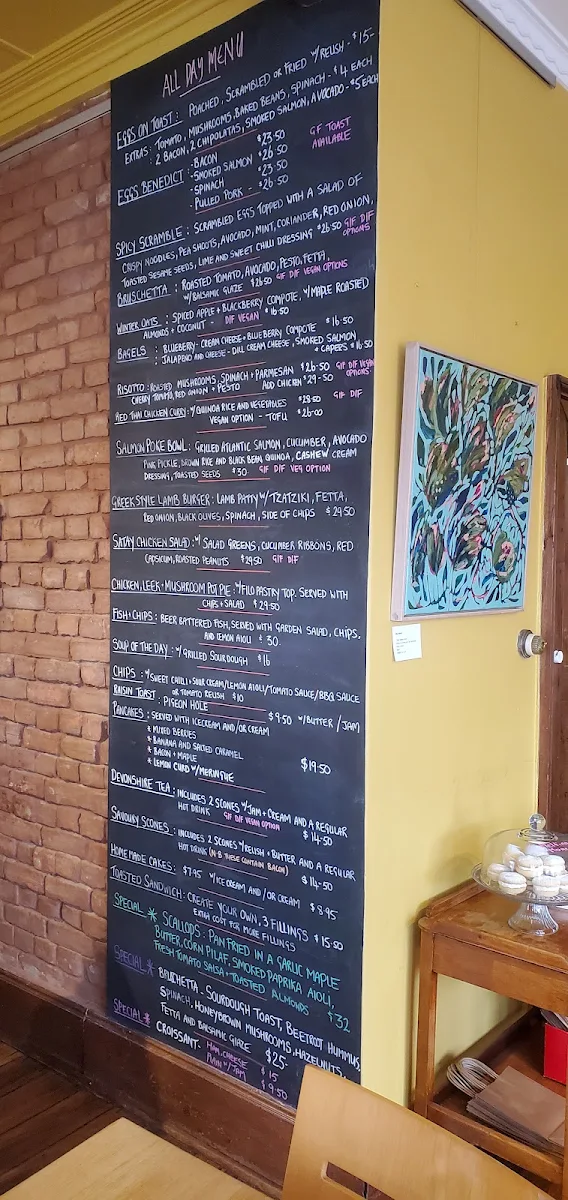 ALL DAY MENU
EGGS ON TOAST: POACHED, SCRAMBLED OR FRIED W/RELISH - $15-
EXTRAS: TOMATO, MUSHROOMS, BAKED BEANS, SPINACH - $4 EACH
: 2 BACON, 2 CHIPOLATAS, SMOKED SALMON, AVOCADO - $5 EACH
EGGS BENEDICT: - BACON $23.50
- SMOKED SALMON $26.50
- SPINACH $23.50
- PULLED PORK - $26.50
GF TOAST
AVAILABLE
SPICY SCRAMBLE: SCRAMBLED EGGS TOPPED WITH A SALAD OF
CRISPY NOODLES, PEA SHOOTS, AVOCADO, MINT, CORIANDER, RED ONION,
TOASTED SESAME SEEDS, LIME AND SWEET CHILLI DRESSING $26.50 GIF DIF
OPTIONS
BRUSCHETTA: ROASTED TOMATO, AVOCADO, PESTO, FETTA,
W/BALSAMIC GLAZE $26.50 GIF DIF VEGAN OPTIONS
WINTER OATS: SPICED APPLE + BLACKBERRY COMPOTE, W/MAPLE ROASTED
ALMONDS + COCONUT - DIF VEGAN $16.50
BAGELS: BLUEBERRY - CREAM CHEESE + BLUEBERRY COMPOTE $16.50
: JALAPEÑO AND CHEESE - DILL CREAM CHEESE, SMOKED SALMON
+ CAPERS $16.50
RISOTTO: ROASTED MUSHROOMS, SPINACH + PARMESAN $26.50 GIF DIF VEGAN
CHERRY TOMATO, RED ONION + PESTO ADD CHICKEN $29-50 OPTIONS
RED THAI CHICKEN CURRY: W/QUINOA RICE AND VEGETABLES $29.50 GIF DIF
VEGAN OPTION - TOFU $26.00
SALMON POKE BOWL: GRILLED ATLANTIC SALMON, CUCUMBER, AVOCADO
PINK PICKLE, BROWN RICE AND BLACK BEAN QUINOA, CASHEW CREAM
DRESSING, TOASTED SEEDS $30 GIF DIF VEG OPTION
GREEK STYLE LAMB BURGER: LAMB PATTY W/TZATZIKI, FETTA,
RED ONION, BLACK OLIVES, SPINACH, SIDE OF CHIPS $29.50
SATAY CHICKEN SALAD: W/ SALAD GREENS, CUCUMBER RIBBONS, RED
CAPSICUM, ROASTED PEANUTS $29.50 GIF DIF
CHICKEN, LEEK + MUSHROOM POT PIE: W/FILO PASTRY TOP. SERVED WITH
CHIPS + SALAD $29.50
FISH + CHIPS: BEER BATTERED FISH, SERVED WITH GARDEN SALAD, CHIPS.
AND LEMON AIOLI $30.
SOUP OF THE DAY: W/GRILLED SOURDOUGH $16
CHIPS: W/SWEET CHILLI + SOUR CREAM/LEMON AIOLI/TOMATO SAUCE/BBQ SAUCE
OR TOMATO RELISH $10
RAISIN TOAST: PIGEON HOLE $9.50 W/BUTTER/JAM
PANCAKES: SERVED WITH ICECREAM AND/OR CREAM
* MIXED BERRIES
* BANANA AND SALTED CARAMEL
* BACON + MAPLE
* LEMON CURD W/MERINGUE $19.50
DEVONSHIRE TEA: INCLUDES 2 SCONES W/JAM + CREAM AND A REGULAR
HOT DRINK GIF DIF VEGAN OPTION $14.50
SAVOURY SCONES: INCLUDES 2 SCONES W/RELISH + BUTTER AND A REGULAR
HOT DRINK (N.B THESE CONTAIN BACON) $14.50
HOME MADE CAKES: $7.95 W/ICE CREAM AND/OR CREAM $8.95
TOASTED SANDWICH: CREATE YOUR OWN, 3 FILLINGS $15.50
EXTRA COST FOR MORE FILLINGS
SPECIAL * SCALLOPS: PAN FRIED IN A GARLIC MAPLE
BUTTER, CORN PILAF, SMOKED PAPRIKA AIOLI,
FRESH TOMATO SALSA + TOASTED ALMONDS $32
SPECIAL * BRUCHETTA. SOURDOUGH TOAST, BEETROOT HUMMUS,
SPINACH, HONEYBROWN MUSHROOMS, HAZELNUTS,
FETTA AND BALSAMIC GLAZE $25-
SPECIAL * CROISSANT- HAM, CHEESE $15
PLAIN W/JAM $9.50